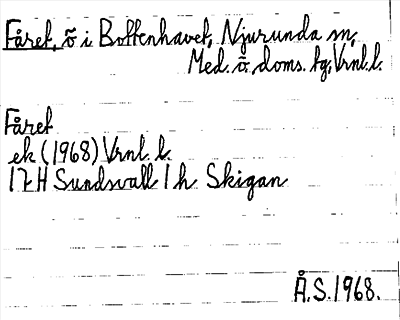 Fåret, ö i Bottenhavet, Njurunda sn,
Med. ö. doms. tg, Vrnl. l.
Fåret
ek (1968) Vrnl. l.
17H Sundsvall 1 h Skigan
Å.S. 1968.